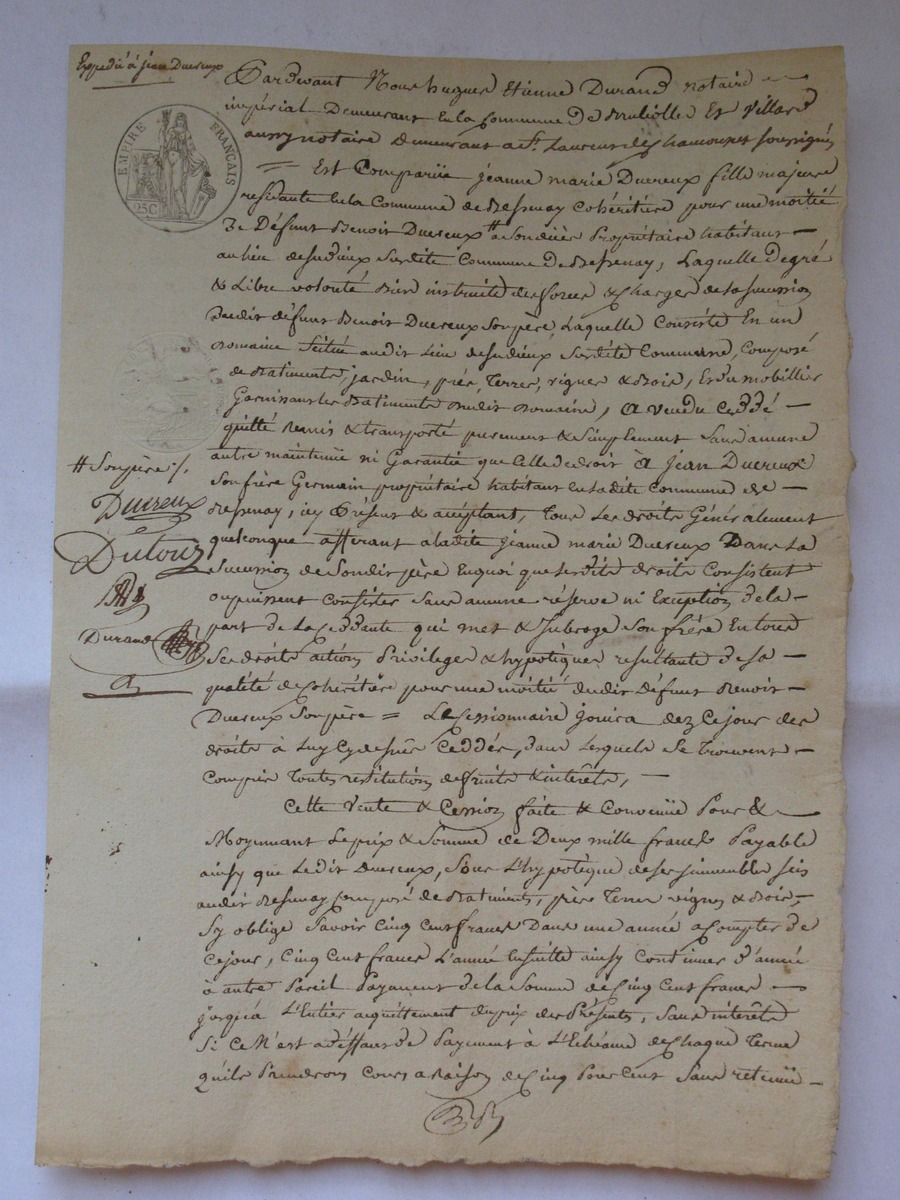 Expedié à jean Ducreux
EMPIRE FRANÇAIS
25C
Pardevant Nous hugues Etienne Durand notaire
impérial Demeurant En la Commune De Brulliolle Et Villard
aussy notaire Demeurant a St. Laurent de Chamousset soussignés
= Est Comparüe jeanne marie Ducreux fille majeure
residante En la Commune de Bessenay Cohéritière pour une moitié
De Défunt Benoit Ducreux # a Son dècès Propriétaire habitant
au lieu de sudieux Surdite Commune De Bessenay, Laquelle De gré
& Libre volonté Bien instruite des forces & Charges de la Sucession
Dudit défunt Benoit Ducreux Son père, Laquelle Consiste En un
Domaine Scitué audit Lieu de sudieux Surdite Commune, Composé
de Batiments, jardin, prés, Terres, vignes & Bois, Et du mobillier
Garnissant les Batiments dudit Domaine, a vendu ceddé
quitté Remis & transporté purement & Simplement Sans aucune
autre maintenüe ni Garantie que Celle de droit à jean Ducreux
Son frère Germain propriétaire habitant En ladite Commune de
Bessenay, icy Présent & aceptant, Tous Les droits Généralement
quelconque afferant a ladite jeanne marie Ducreux Dans La
Sucession de Son dit père En quoi que Lesdits droits Consistent
ou puissent Consister Sans aucune réserve ni Exception de la
part de La Ceddante qui met & Subroge Son frère En tous
Ses droits actions Privileges & hypotèques resultants de sa
qualité de Cohéritière pour une moitié dudit Défunt Benoit
Ducreux Son père = Le Cessionnaire jouira dez Ce jour des
droits à Luy Cy dessus Ceddés, dans Lesquels Se Trouvent
Compris Toutes restitutions de fruits & intérêts,
Cette Vente & Cession faite & Convenüe Pour &
Moyennant Le prix & Somme de Deux mille francs Payable
ainsy que Ledit Ducreux, Sous L'hypotèque de Ses immeubles Sis
audit Bessenay Composé de Batiments, près Terres vignes & Bois,
Sy oblige Savoir Cinq Cent francs Dans une année a Compter de
Ce jour, Cinq Cent francs L'année Ensuitte ainsy Continuer D'année
à autre Pareil Payement de la Somme de Cinq Cent francs
jusqu'a L'Entier acquittement du prix des Présentes, Sans intérêts
Si Ce N'est a déffaut de Payement à L'Echéance de Chaque Terme
qu'ils Prendront Cours a Raison de Cinq Pour Cent Sans retenüe
# Son père
Ducreux
Dutour
Durand